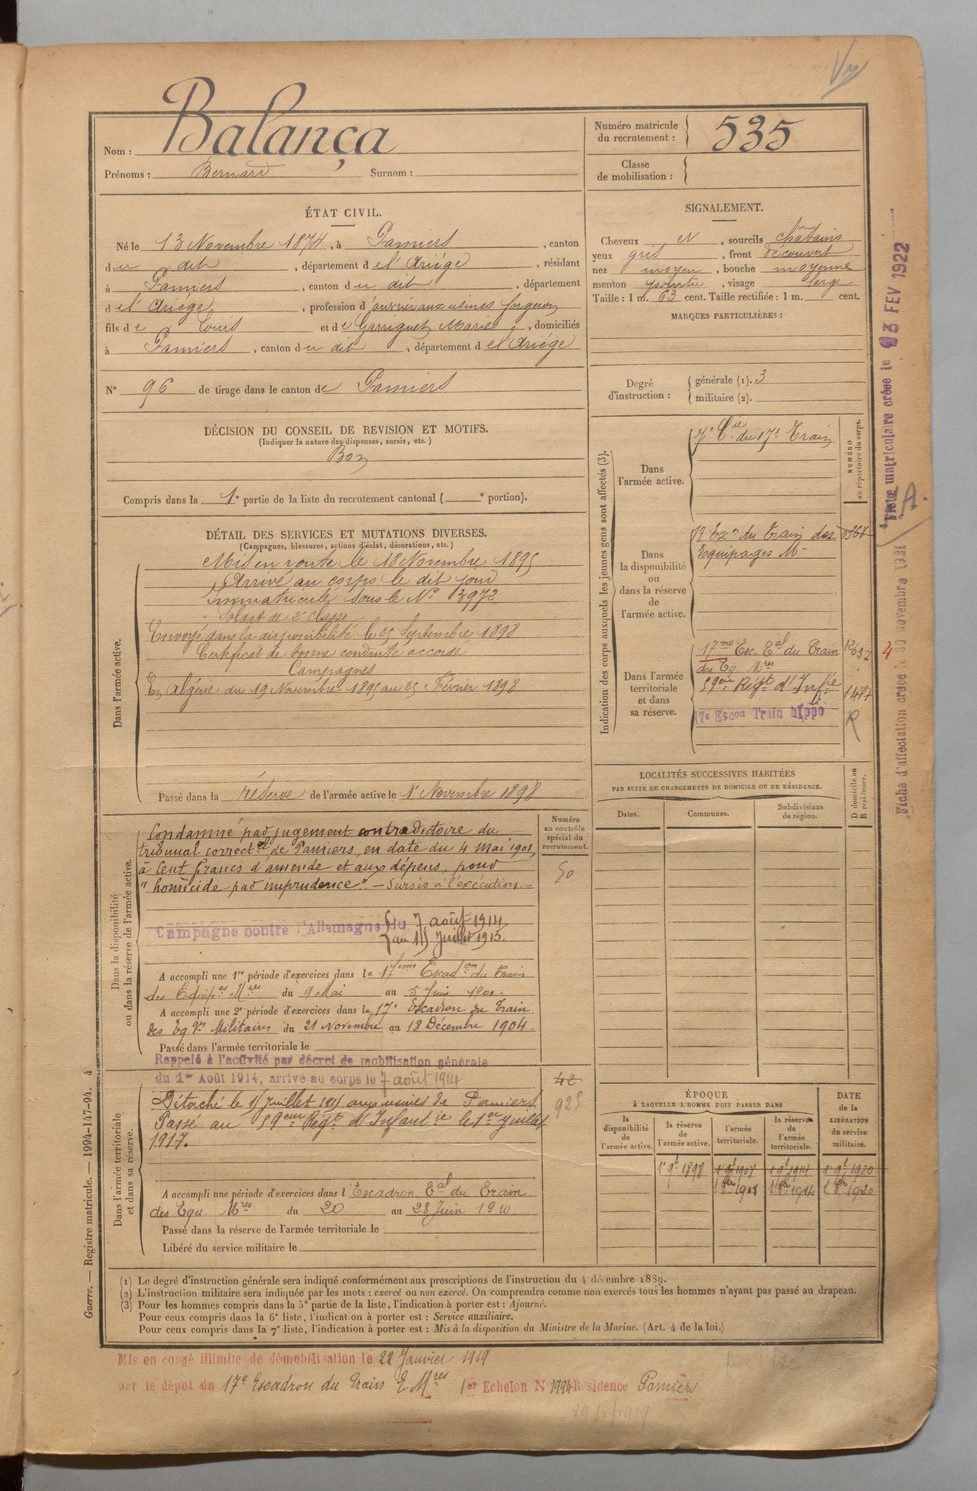 Nom : Balança
Prénoms : Bernard Surnom :
Numéro matricule du recrutement : 535
Classe de mobilisation :
ÉTAT CIVIL.
Né le 13 Novembre 1874, à Pamiers, canton
du dit, département de l'Ariège, résidant
à Pamiers, canton du dit, département
de l'Ariège, profession d'ouvrier aux usines forgeron
fils de Louis et de Garrigues Marie, domiciliés
à Pamiers, canton du dit, département de l'Ariège
N° 96 de tirage dans le canton de Pamiers
SIGNALEMENT.
Cheveux et, sourcils châtains
yeux gris, front découvert
nez moyen, bouche moyenne
menton pointu, visage large
Taille : 1 m. 63 cent. Taille rectifiée : 1 m. cent.
MARQUES PARTICULIÈRES :
Degré d'instruction : générale (1). 3
militaire (2).
DÉCISION DU CONSEIL DE REVISION ET MOTIFS.
(Indiquer la nature des dispenses, sursis, etc.)
Bon
Compris dans la 1e partie de la liste du recrutement cantonal ( e portion).
DÉTAIL DES SERVICES ET MUTATIONS DIVERSES.
(Campagnes, blessures, actions d'éclat, décorations, etc.)
Dans l'armée active.
Mis en route le 18 Novembre 1895
Arrivé au corps le dit jour
Immatriculé sous le N° 3972
Soldat de 2e classe
Envoyé dans la disponibilité le 25 Septembre 1898
Certificat de bonne conduite accordé
Campagnes
En Algérie du 19 Novembre 1895 au 25 Février 1898
Passé dans la réserve de l'armée active le 1e Novembre 1898
Indication des corps auxquels les jeunes gens sont affectés (3).
NUMÉRO au répertoire du corps.
Dans l'armée active.
7e Cie du 17e Train
Dans la disponibilité ou dans la réserve de l'armée active.
17 Ezn du Train des
Equipages Mres
Dans l'armée territoriale et dans sa réserve.
17me Esc. Eal du Train
des Eq. Mres
59eme Regt d'Infie
1477
17e Escon Train hippo
R
LOCALITÉS SUCCESSIVES HABITÉES
PAR SUITE DE CHANGEMENTS DE DOMICILE OU DE RÉSIDENCE.
Dates. Communes. Subdivisions de région. D domicile ou R résidence.
Dans la disponibilité ou dans la réserve de l'armée active.
Numéro au contrôle spécial du recrutement.
50
Condamné par jugement contradictoire du
tribunal correctel de Pamiers, en date du 4 Mai 1901,
à Cent francs d'amende et aux dépens, pour
"homicide par imprudence". — Sursis à l'exécution —
Campagne contre l'Allemagne du 7 août 1914
au 15 Juillet 1915.
A accompli une 1re période d'exercices dans le 17ème Escadon du Train
des Equipes Mres du 9 Mai au 5 Juin 1901.
A accompli une 2e période d'exercices dans le 17e Escadron du Train
des Eqges Militaires du 21 Novembre au 18 Décembre 1904.
Passé dans l'armée territoriale le
Rappelé à l'activité par décret de mobilisation générale
du 1er Août 1914, arrivé au corps le 7 août 1914
Dans l'armée territoriale et dans sa réserve.
42
925
Détaché le 15 Juillet 1915 aux usines de Pamiers
Passé au 59eme Regt d'Infantie le 1er Juillet
1917.
A accompli une période d'exercices dans l'Escadron Eal du Train
des Equ. Mres du 20 au 28 Juin 1910
Passé dans la réserve de l'armée territoriale le
Libéré du service militaire le
ÉPOQUE
À LAQUELLE L'HOMME DOIT PASSER DANS
la disponibilité de l'armée active. la réserve de l'armée active. l'armée territoriale. la réserve de l'armée territoriale.
DATE de la LIBÉRATION du service militaire.
1e 9bre 1898 1e 9bre 1908 1e 9bre 1914 1e 9bre 1920
1 8bre 1908 1 8bre 1914 1 8bre 1920
(1) Le degré d'instruction générale sera indiqué conformément aux prescriptions de l'instruction du 4 décembre 1889.
(2) L'instruction militaire sera indiquée par les mots : exercé ou non exercé. On comprendra comme non exercés tous les hommes n'ayant pas passé au drapeau.
(3) Pour les hommes compris dans la 5e partie de la liste, l'indication à porter est : Ajourné.
Pour ceux compris dans la 6e liste, l'indication à porter est : Service auxiliaire.
Pour ceux compris dans la 7e liste, l'indication à porter est : Mis à la disposition du Ministre de la Marine. (Art. 4 de la loi.)
Mis en congé illimité de démobilisation le 22 Janvier 1919
par le dépôt du 17e Escadron du Train E. Mres 1er Echelon N° 1994 Résidence Pamiers
Guerre. — Registre matricule. — 1994-147-94. 4
Fiche matriculaire créée le 03 FEV 1922
A.
Fiche d'affectation créée le 30 novembre 1921
4